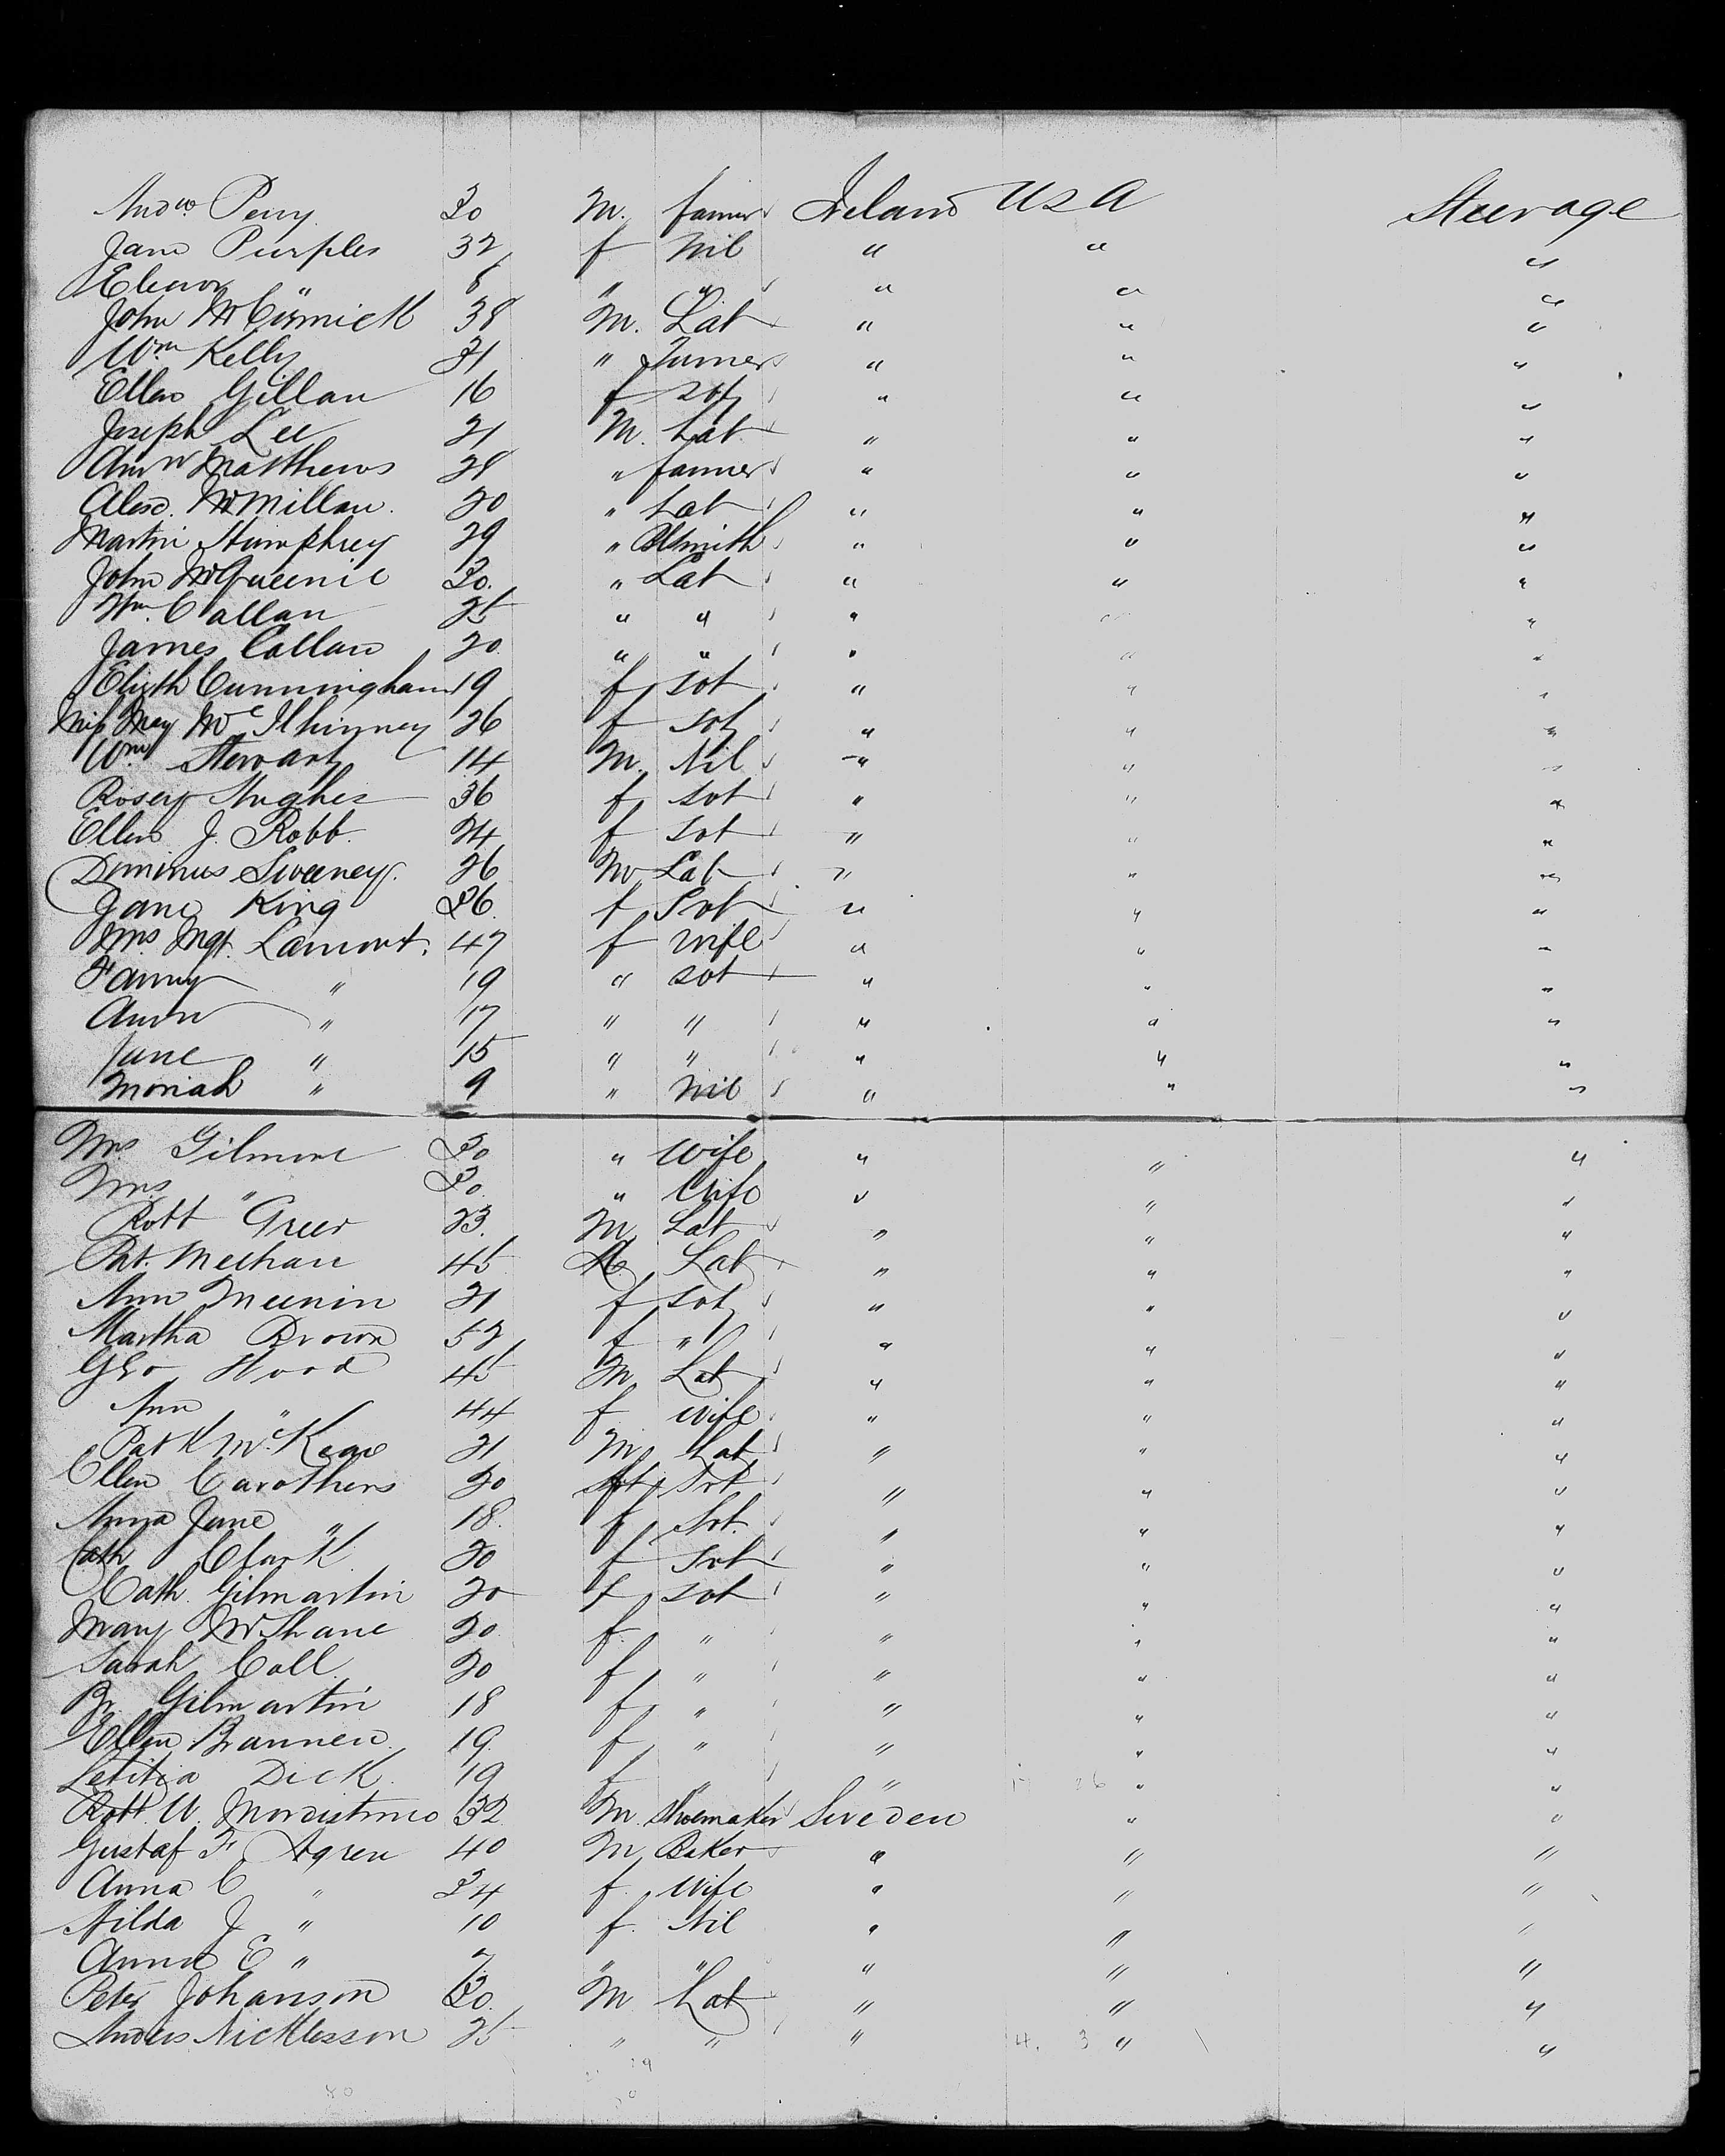 Andw. Perry 30 M. farmer Ireland USA Steerage
Jane Purples 32 f Nil " " "
Eleanor " 8 " " " " "
John McCormick 38 M. Lab " " "
Wm Kelly 21 " Turner " " "
Ellen Gillan 16 f svt " " "
Joseph Lee 21 M. Lab " " "
Andw Matthews 28 " farmer " " "
Alexd. McMillan. 20 " Lab " " "
Martin Humphrey 29 " Blsmith " " "
John 30. " Lab " " "
Wm. Callan 25 " " " " "
James Callan 20 " " " " "
Elizth Cunningham 19 f svt " " "
Miss May McIlhinney 26 f svt " " "
Wm Stewart 14 M. Nil " " "
Rosey Hughes 36 f svt " " "
Ellen J. Robb 24 f svt " " "
Sweeney. 26 M Lab " " "
Jane King 26. f Svt " " "
Mrs Mgt. Lamont. 47 f wife " " "
Fanny " 19 " svt " " "
Ann " 17 " " " " "
Jane " 15 " " " " "
Moriah " 9 " Nil " " "
Mrs Gilmore 30 " Wife " " "
Mrs. " 30. " Wife " " "
Robt Greer 23. M Lab " " "
Pat. Meehan 45 M Lab " " "
Ann 21 f svt " " "
Martha Brown 52 f " " " "
Geo Hood 45 M Lab " " "
Ann " 44 f wife " " "
Patk McKeone 21 M Lab " " "
Ellen Carothers 20 f Svt " " "
Anna Jane " 18. f Svt. " " "
Cath Clark 20 f Svt " " "
Cath. Gilmartin 20 f svt " " "
Mary McShane 20 f. " " " "
Sarah Coll 20 f " " " "
Br. Gilmartin 18 f " " " "
Ellen Brannen 19. f " " " "
Letitia Dick. 19 f " " " "
Robt. W. 32 M. Shoemaker Sweden " "
Gustaf F. Agren 40 M Baker " " "
Anna C " 34 f. wife " " "
Hilda J " 10 f. Nil " " "
Anna E " 7 " " " " "
Peter Johanson 30. M Lab " " "
Anders Nicklesson 25 " " " " "